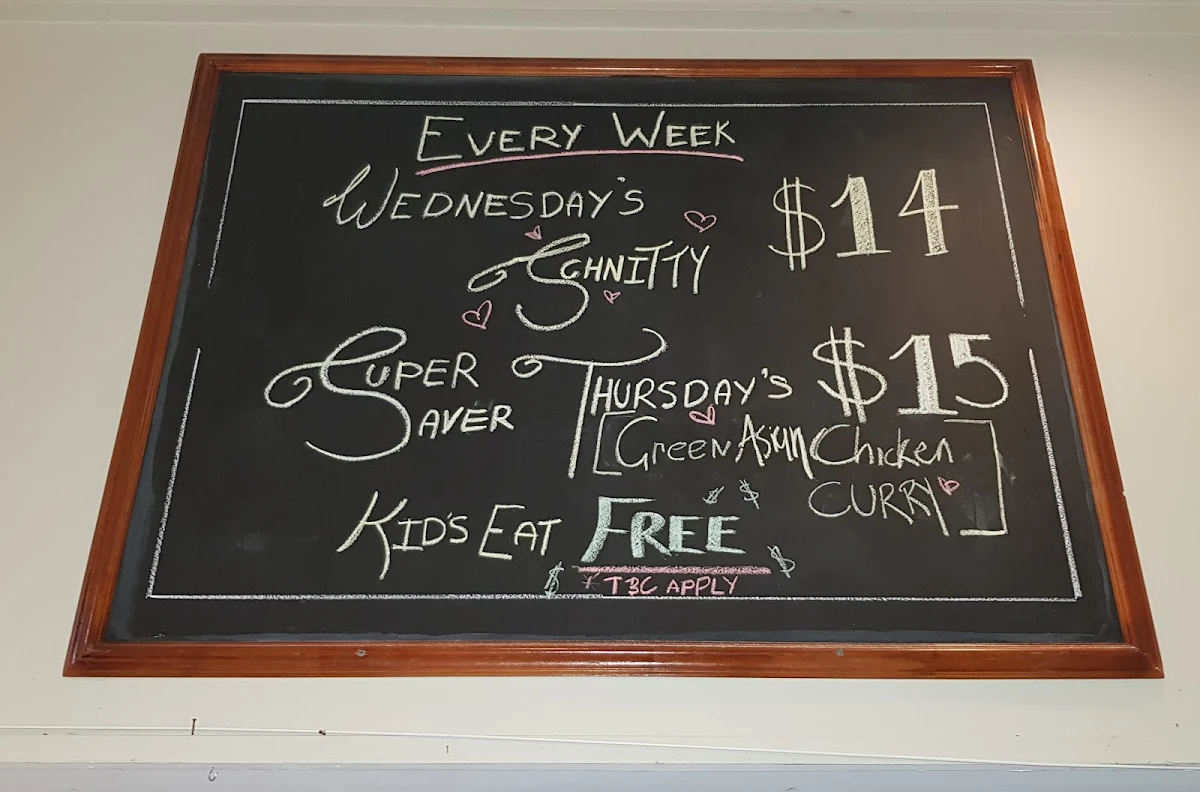 EVERY WEEK
WEDNESDAY'S $14
SCHNITTY
SUPER SAVER THURSDAY'S $15
[Green Asian Chicken
CURRY]
KID'S EAT FREE $ $
$ $
* T&C APPLY